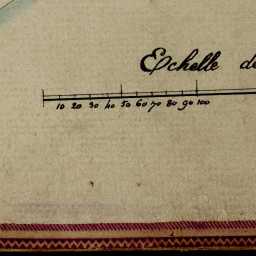 Echelle de
10 20 30 40 50 60 70 80 90 100